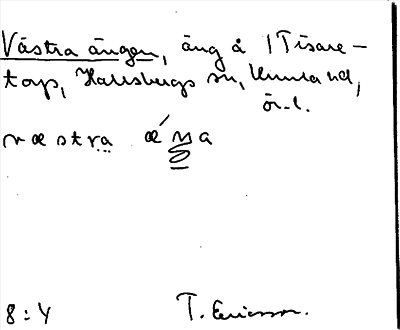 Västra ängen, äng å 1 Tisare-
torp, Hallsbergs sn, Kumla hd,
Ör. l.
væstra æ´ŋa
8:4 T. Ericsson.